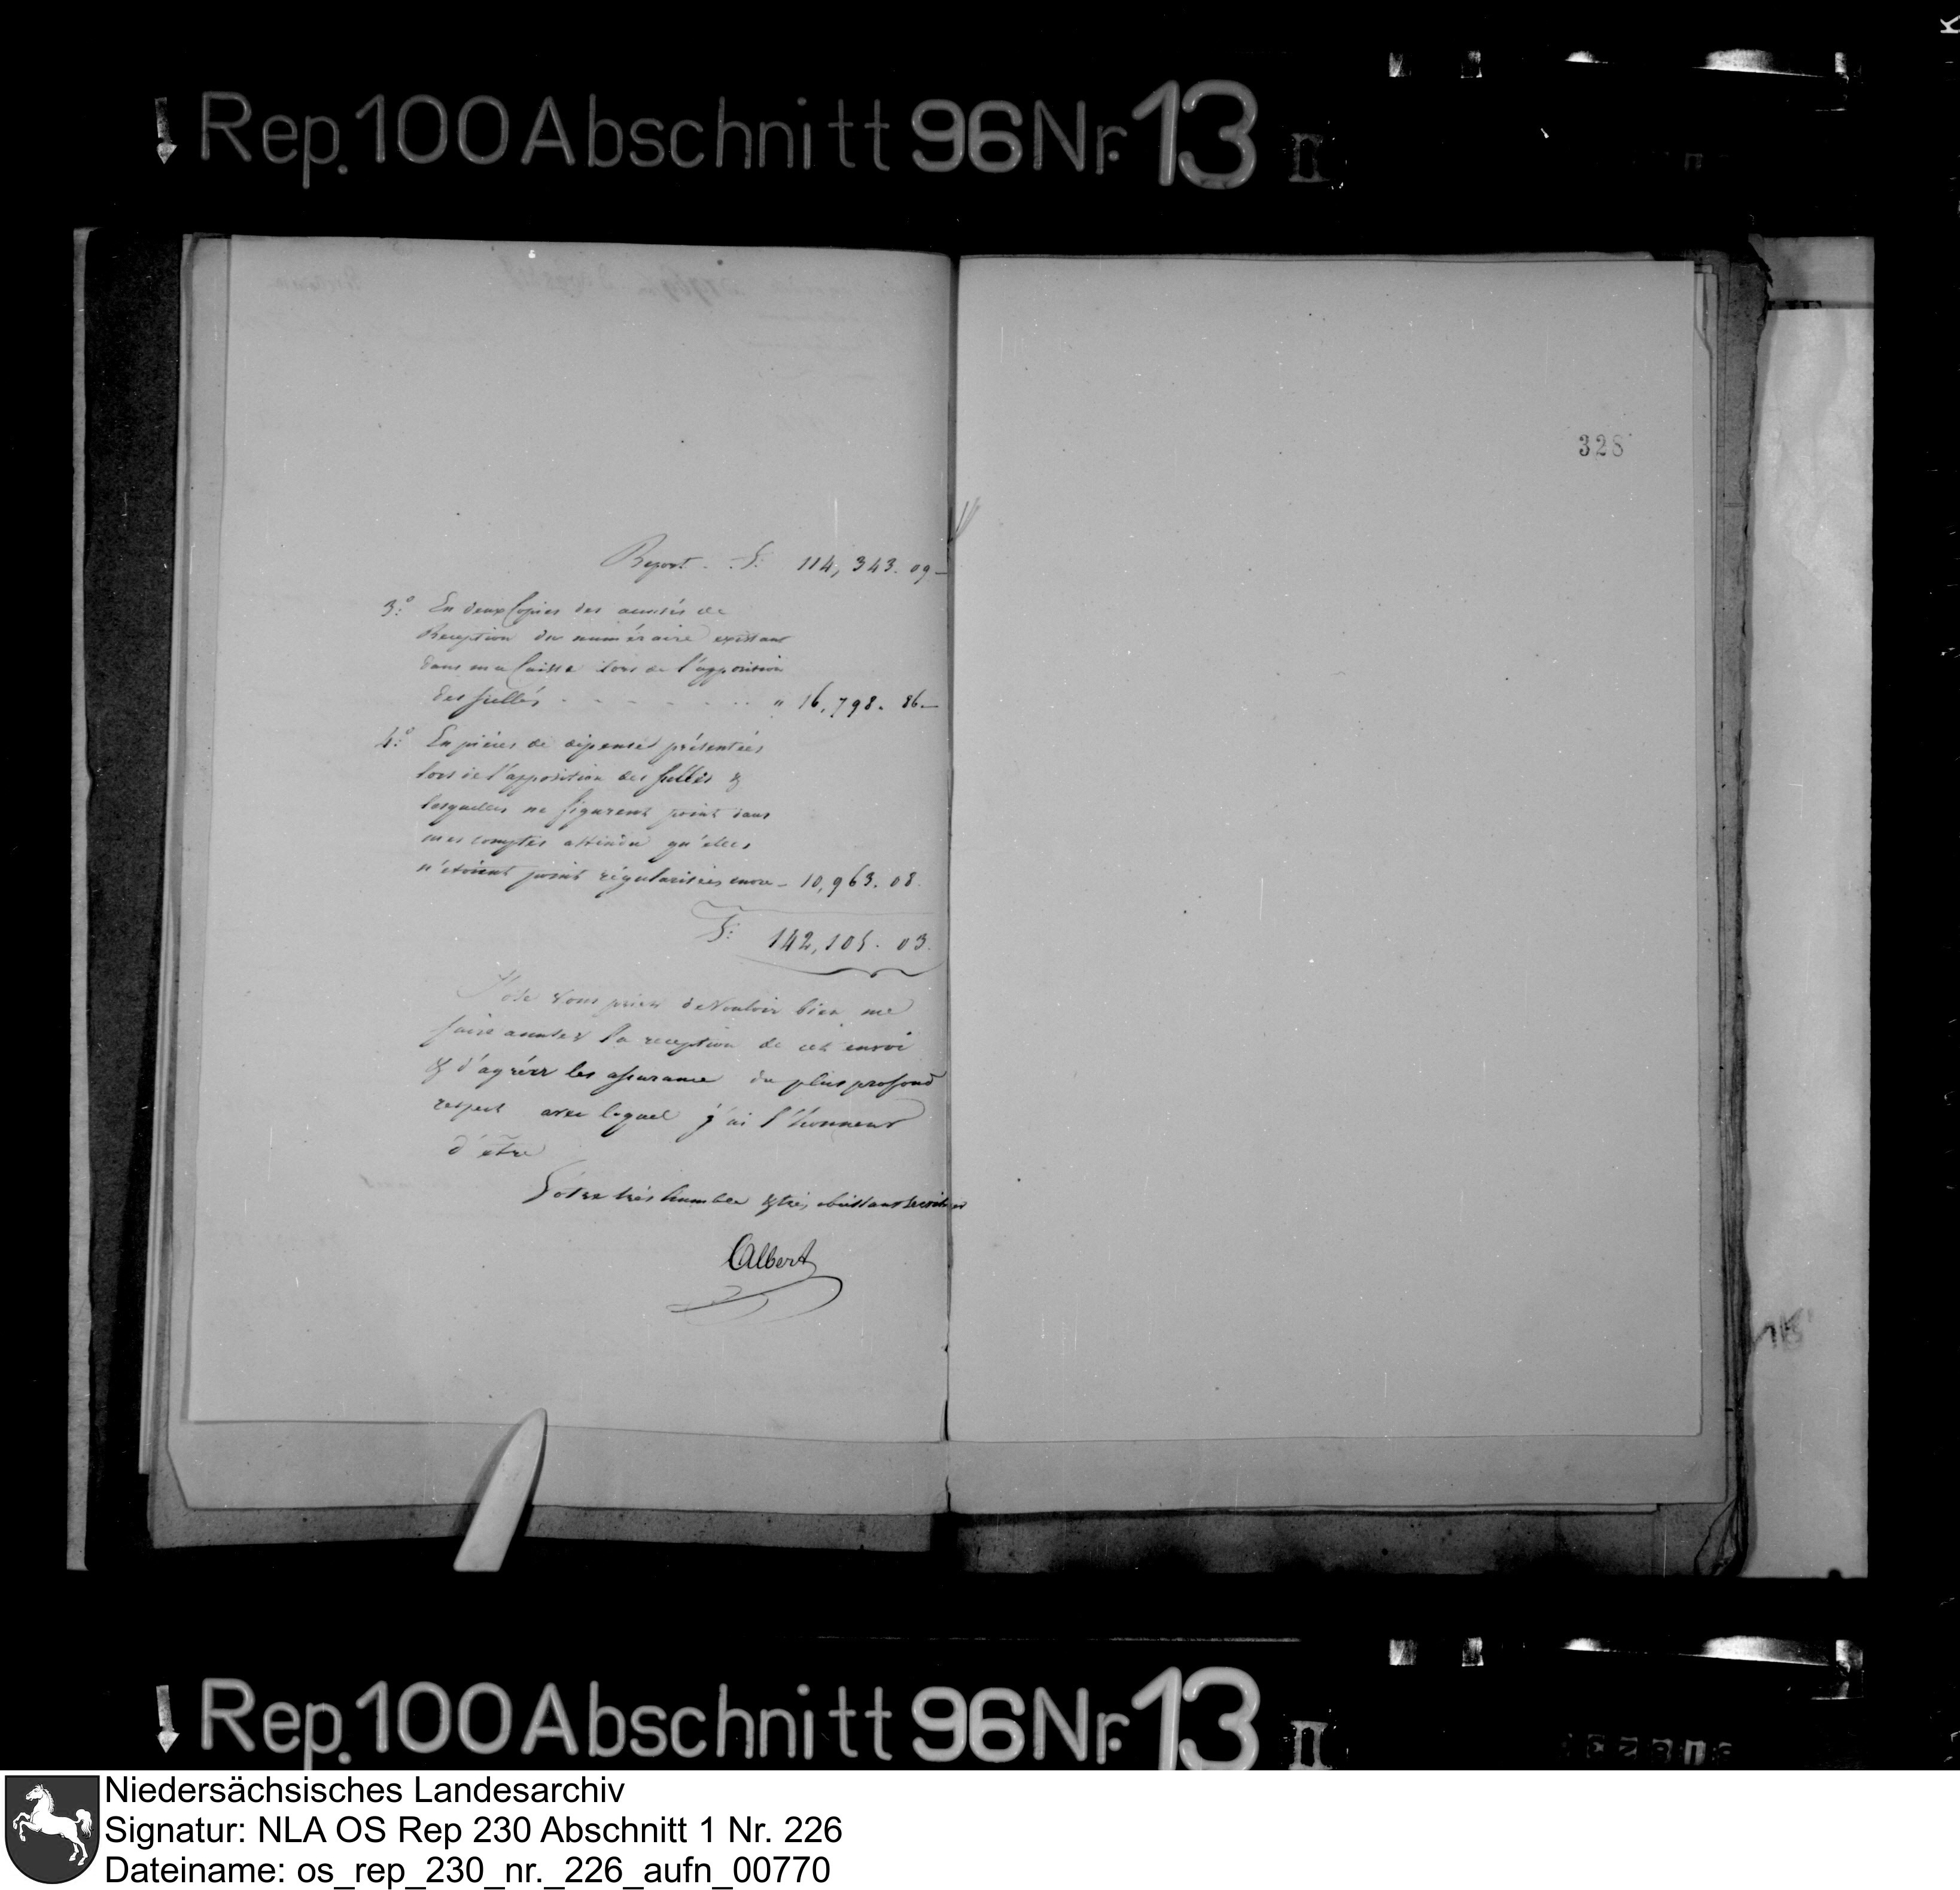 Rep. 100 Abschnitt 96 Nr. 13 II
328
Report . . F. 114,343. 09 —
3.° En deux Copies des accusés de
Reception du numéraire existant
dans ma Caisse lors de l'apposition
des scellés . . . . . . . " 16,798. 86 —
4.° En pièces de dépense présentées
lors de l'apposition des scellés &
lesquelles ne figurent point dans
mes comptes attendu qu'elles
n'étoient point régularisées encore — 10,963. 08.
F. 142,105. 03.
J'ose Vous prier de Vouloir bien me
faire accuser la reception de cet envoi
& d'agréer les assurance du plus profond
respect avec lequel j'ai l'honneur
d'être
Votre très humble & très obéissant serviteur
Albert
Rep. 100 Abschnitt 96 Nr. 13 II
Niedersächsisches Landesarchiv
Signatur: NLA OS Rep 230 Abschnitt 1 Nr. 226
Dateiname: os_rep_230_nr._226_aufn_00770